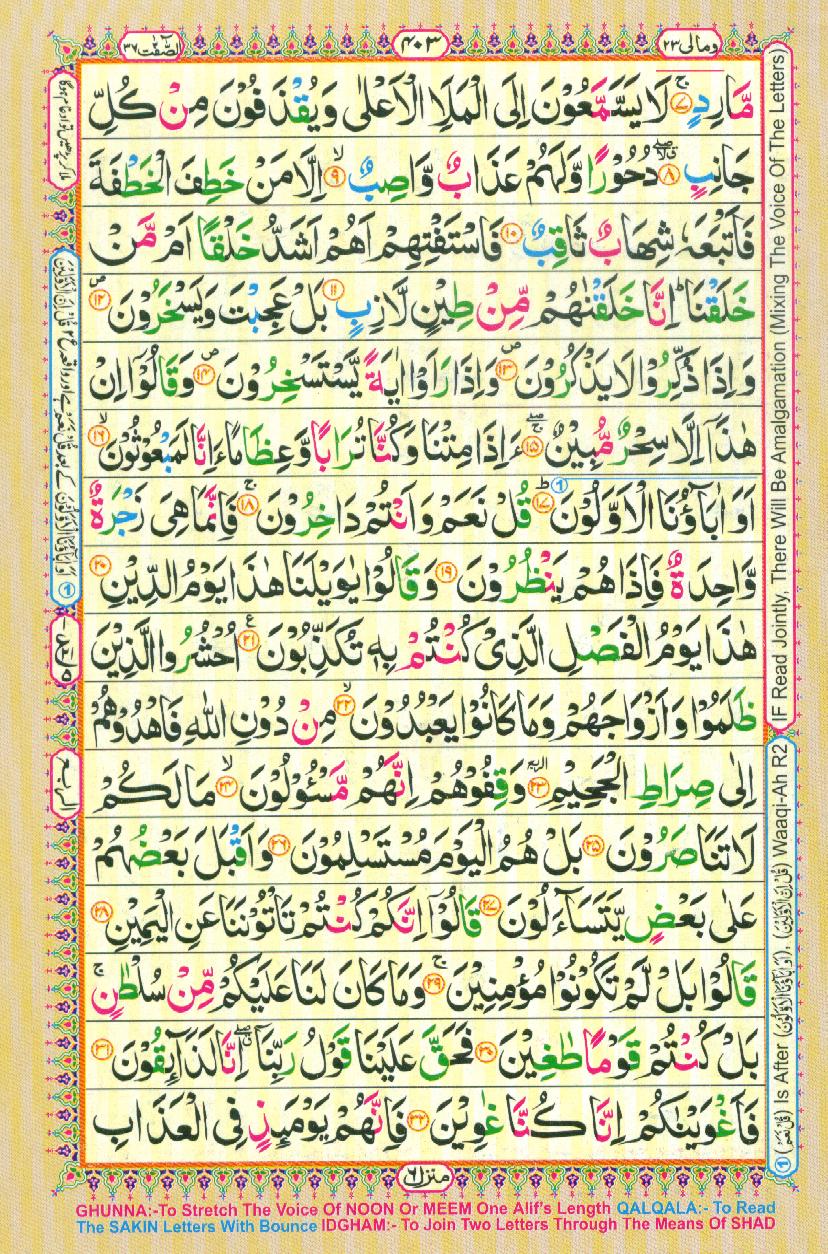 ومالی ۲۳
۴۰۳
الصّٰفّٰت ۳۷
مَّارِدٍ ۚ‏﴿۷﴾ لَا يَسَّمَّعُوْنَ اِلَى الْمَلَاِ الْاَعْلٰى وَيُقْذَفُوْنَ مِنْ كُلِّ
جَانِبٍ ﴿۸﴾ دُحُوْرًا وَّلَهُمْ عَذَابٌ وَّاصِبٌ ۙ﴿۹﴾ اِلَّا مَنْ خَطِفَ الْخَطْفَةَ
فَاَتْبَعَهٗ شِهَابٌ ثَاقِبٌ ﴿۱۰﴾ فَاسْتَفْتِهِمْ اَهُمْ اَشَدُّ خَلْقًا اَمْ مَّنْ
خَلَقْنَا ؕ اِنَّا خَلَقْنٰهُمْ مِّنْ طِيْنٍ لَّازِبٍ ﴿۱۱﴾ بَلْ عَجِبْتَ وَيَسْخَرُوْنَ ۪﴿۱۲﴾
وَاِذَا ذُكِّرُوْا لَا يَذْكُرُوْنَ ۪﴿۱۳﴾ وَاِذَا رَاَوْا اٰيَةً يَّسْتَسْخِرُوْنَ ۪﴿۱۴﴾ وَقَالُوْۤا اِنْ
هٰذَاۤ اِلَّا سِحْرٌ مُّبِيْنٌ ﴿۱۵﴾ ءَاِذَا مِتْنَا وَكُنَّا تُرَابًا وَّعِظَامًا ءَاِنَّا لَمَبْعُوْثُوْنَ ۙ﴿۱۶﴾
اَوَ اٰبَآؤُنَا الْاَوَّلُوْنَ ؕ﴿۱۷﴾ قُلْ نَعَمْ وَاَنْتُمْ دَاخِرُوْنَ ۚ﴿۱۸﴾ فَاِنَّمَا هِىَ زَجْرَةٌ
وَّاحِدَةٌ فَاِذَا هُمْ يَنْظُرُوْنَ ﴿۱۹﴾ وَقَالُوْا يٰوَيْلَنَا هٰذَا يَوْمُ الدِّيْنِ ﴿۲۰﴾
هٰذَا يَوْمُ الْفَصْلِ الَّذِىْ كُنْتُمْ بِهٖ تُكَذِّبُوْنَ ﴿۲۱﴾ اُحْشُرُوا الَّذِيْنَ
ظَلَمُوْا وَاَزْوَاجَهُمْ وَمَا كَانُوْا يَعْبُدُوْنَ ۙ﴿۲۲﴾ مِنْ دُوْنِ اللّٰهِ فَاهْدُوْهُمْ
اِلٰى صِرَاطِ الْجَحِيْمِ ﴿۲۳﴾ وَقِفُوْهُمْ اِنَّهُمْ مَّسْـُٔوْلُوْنَ ۙ﴿۲۴﴾ مَا لَكُمْ
لَا تَنَاصَرُوْنَ ﴿۲۵﴾ بَلْ هُمُ الْيَوْمَ مُسْتَسْلِمُوْنَ ﴿۲۶﴾ وَاَقْبَلَ بَعْضُهُمْ
عَلٰى بَعْضٍ يَّتَسَآءَلُوْنَ ﴿۲۷﴾ قَالُوْۤا اِنَّكُمْ كُنْتُمْ تَاْتُوْنَنَا عَنِ الْيَمِيْنِ ﴿۲۸﴾
قَالُوْا بَلْ لَّمْ تَكُوْنُوْا مُؤْمِنِيْنَ ۚ﴿۲۹﴾ وَمَا كَانَ لَنَا عَلَيْكُمْ مِّنْ سُلْطٰنٍ ۚ
بَلْ كُنْتُمْ قَوْمًا طٰغِيْنَ ﴿۳۰﴾ فَحَقَّ عَلَيْنَا قَوْلُ رَبِّنَاۤ اِنَّا لَذَآئِقُوْنَ ﴿۳۱﴾
فَاَغْوَيْنٰكُمْ اِنَّا كُنَّا غٰوِيْنَ ﴿۳۲﴾ فَاِنَّهُمْ يَوْمَئِذٍ فِى الْعَذَابِ
منزل ۶
IF Read Jointly, There Will Be Amalgamation (Mixing The Voice Of The Letters)
① (قُلْ نَعَمْ) Is After (اَوَاٰبَآؤُنَا الْاَوَّلُوْنَ), (قُلْ اِنَّ الْاَوَّلِيْنَ) Waaqi-Ah R2
GHUNNA:-To Stretch The Voice Of NOON Or MEEM One Alif's Length QALQALA:- To Read
The SAKIN Letters With Bounce IDGHAM:- To Join Two Letters Through The Means Of SHAD